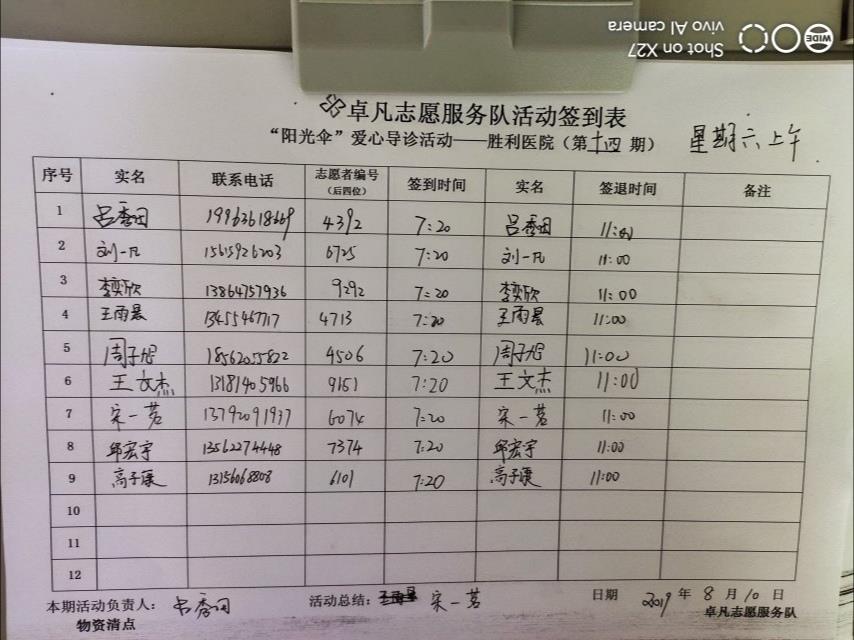 Shot on X27
vivo AI camera
WIDE
卓凡志愿服务队活动签到表
“阳光伞”爱心导诊活动——胜利医院（第十四期） 星期六上午
序号 实名 联系电话 志愿者编号（后四位） 签到时间 实名 签退时间 备注
1 吕秀田 4392 7:20 吕秀田
2 刘一凡 15615926203 6725 7:20 刘一凡 11:00
3 李奕欣 13864757936 9292 7:20 李奕欣 11:00
4 王雨晨 13455467717 4713 7:20 王雨晨 11:00
5 周子旭 4506 7:20 周子旭 11:00
6 王文杰 13181405966 9151 7:20 王文杰 11:00
7 宋一茗 13792091937 6074 7:20 宋一茗 11:00
8 邱宏宇 13562274448 7374 7:20 邱宏宇 11:00
9 高子康 13156068808 6101 7:20 高子康 11:00
10
11
12
本期活动负责人：吕秀田 活动总结： 宋一茗 日期 2019年8月10日
物资清点 卓凡志愿服务队